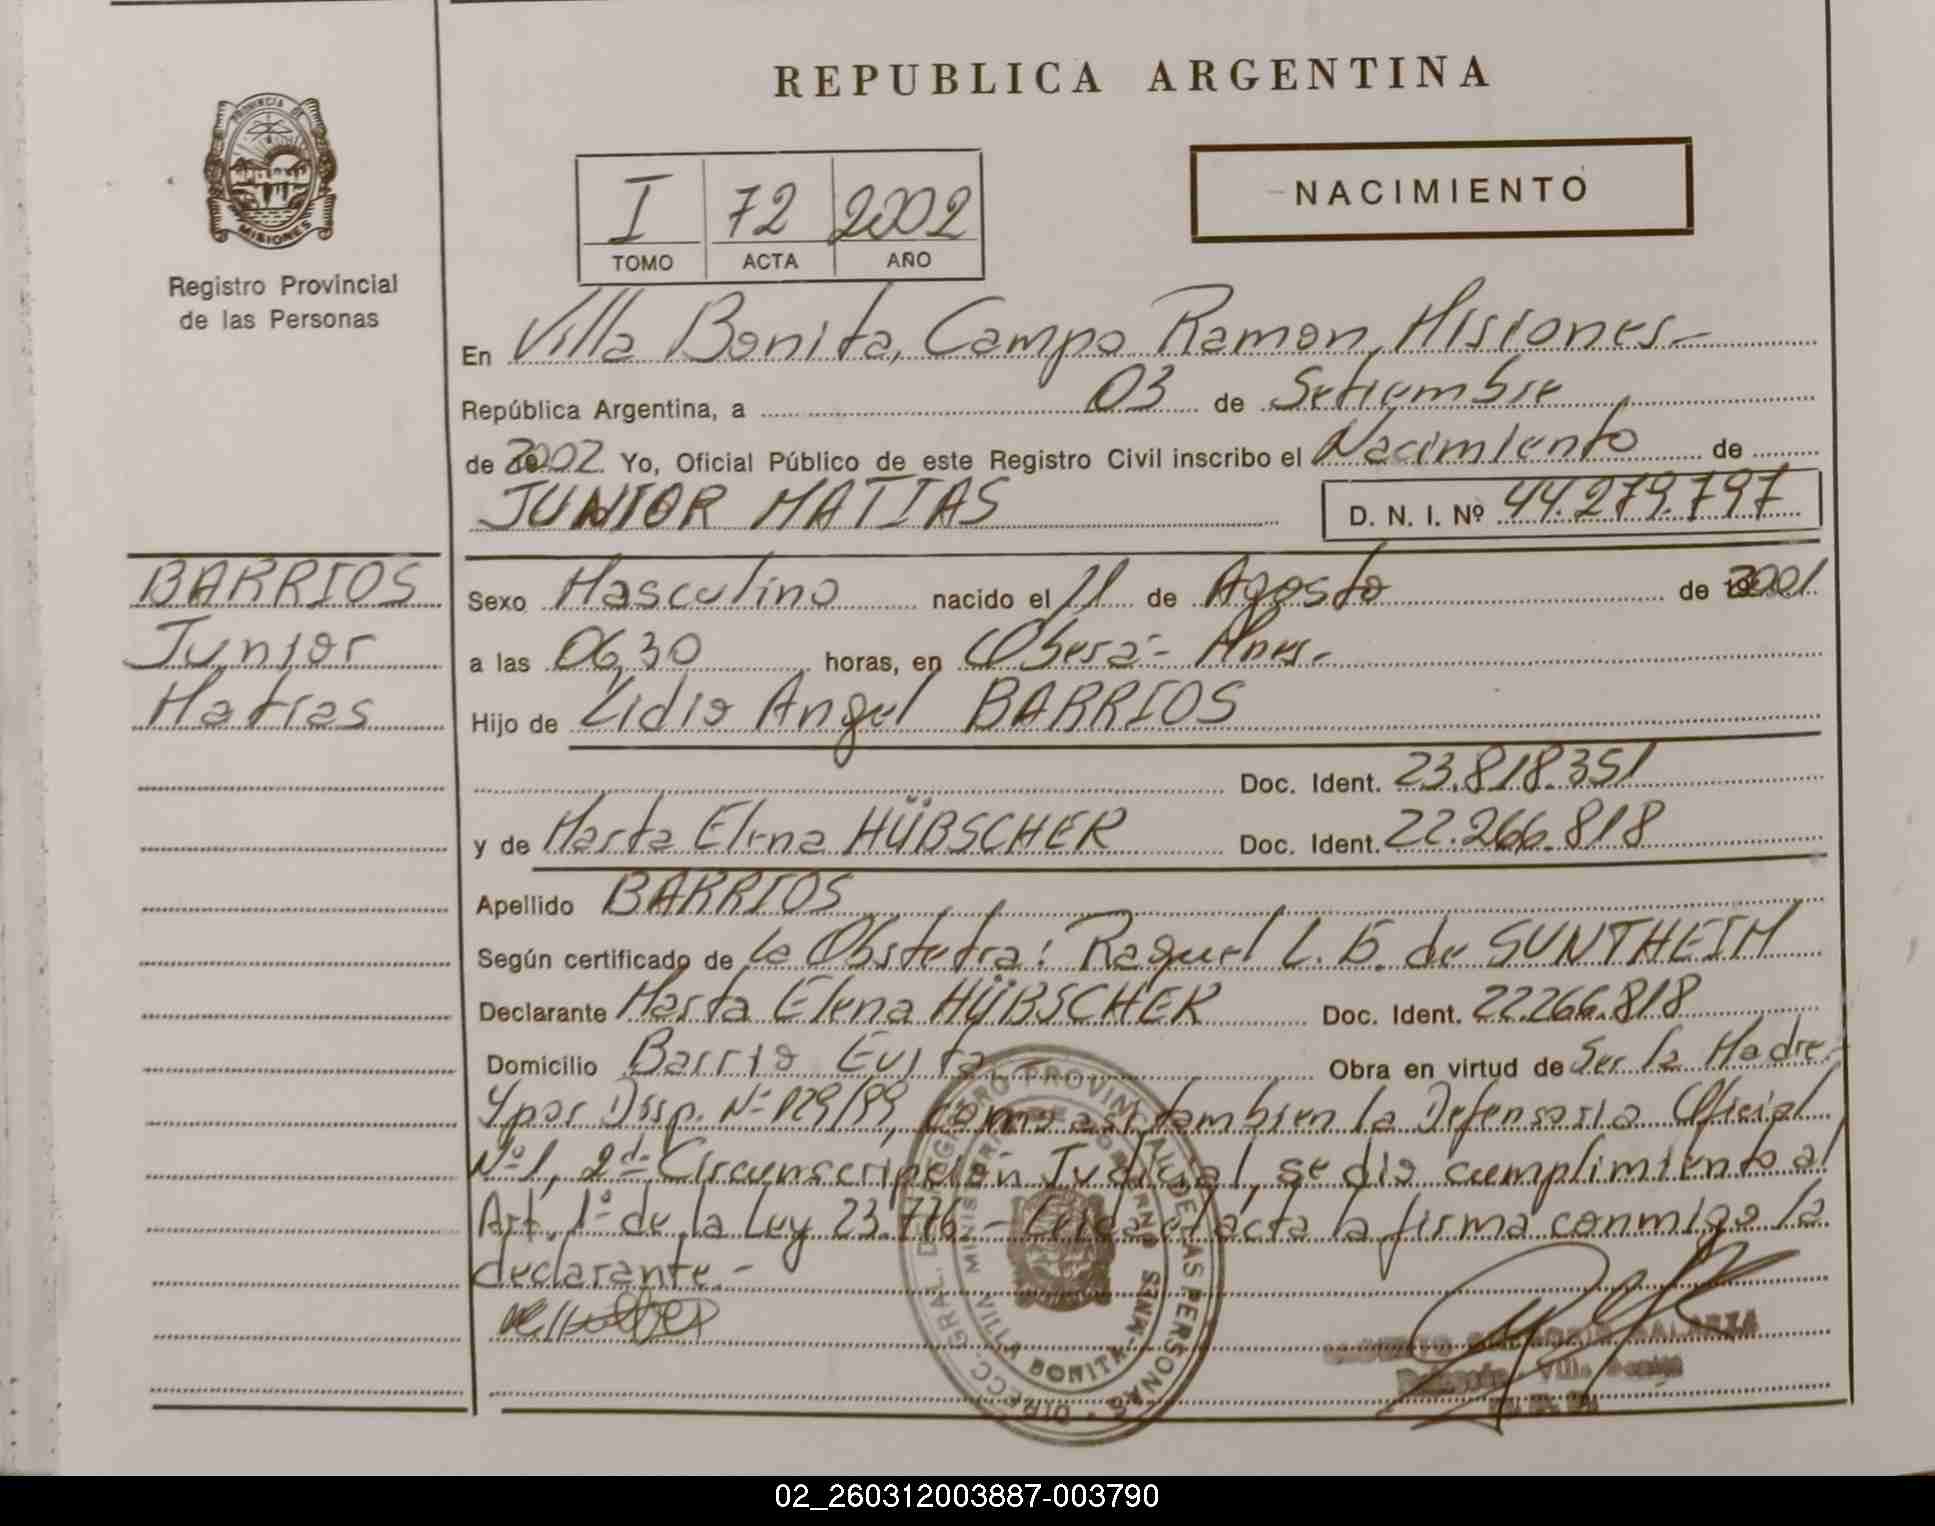 REPUBLICA ARGENTINA
PROVINCIA DE
MISIONES
Registro Provincial
de las Personas
NACIMIENTO
I 72 2002
TOMO ACTA AÑO
En Villa Bonita, Campo Ramon, Misiones-
República Argentina, a 03 de Setiembre
de 2002 Yo, Oficial Público de este Registro Civil inscribo el Nacimiento de
JUNIOR MATIAS D. N. I. Nº 44.279.797
BARRIOS
Junior
Matias
Sexo Masculino nacido el 11 de Agosto de 2001
a las 06,30 horas, en Oberá- Mnes.-
Hijo de Lidio Angel BARRIOS
Doc. Ident. 23.818.351
y de Marta Elena HÜBSCHER Doc. Ident. 22.266.818
Apellido BARRIOS
Según certificado de la Obstetra: Raquel L. B. de SUNTHEIM
Declarante Marta Elena HÜBSCHER Doc. Ident. 22.266.818
Domicilio Barrio Evita Obra en virtud de Ser la Madre.-
Y por Disp. Nº 129/99, como asi tambien la Defensoria Oficial
Nº 1, 2da Circunscripción Judicial, se dio cumplimiento al
Art. 1º de la Ley 23.776.- Leida el acta la firma conmigo la
declarante.-
DIRECC. GRAL. DEL REGISTRO PROVINCIAL DE LAS PERSONAS
VILLA BONITA - MNES
Villa Bonita
02_260312003887-003790